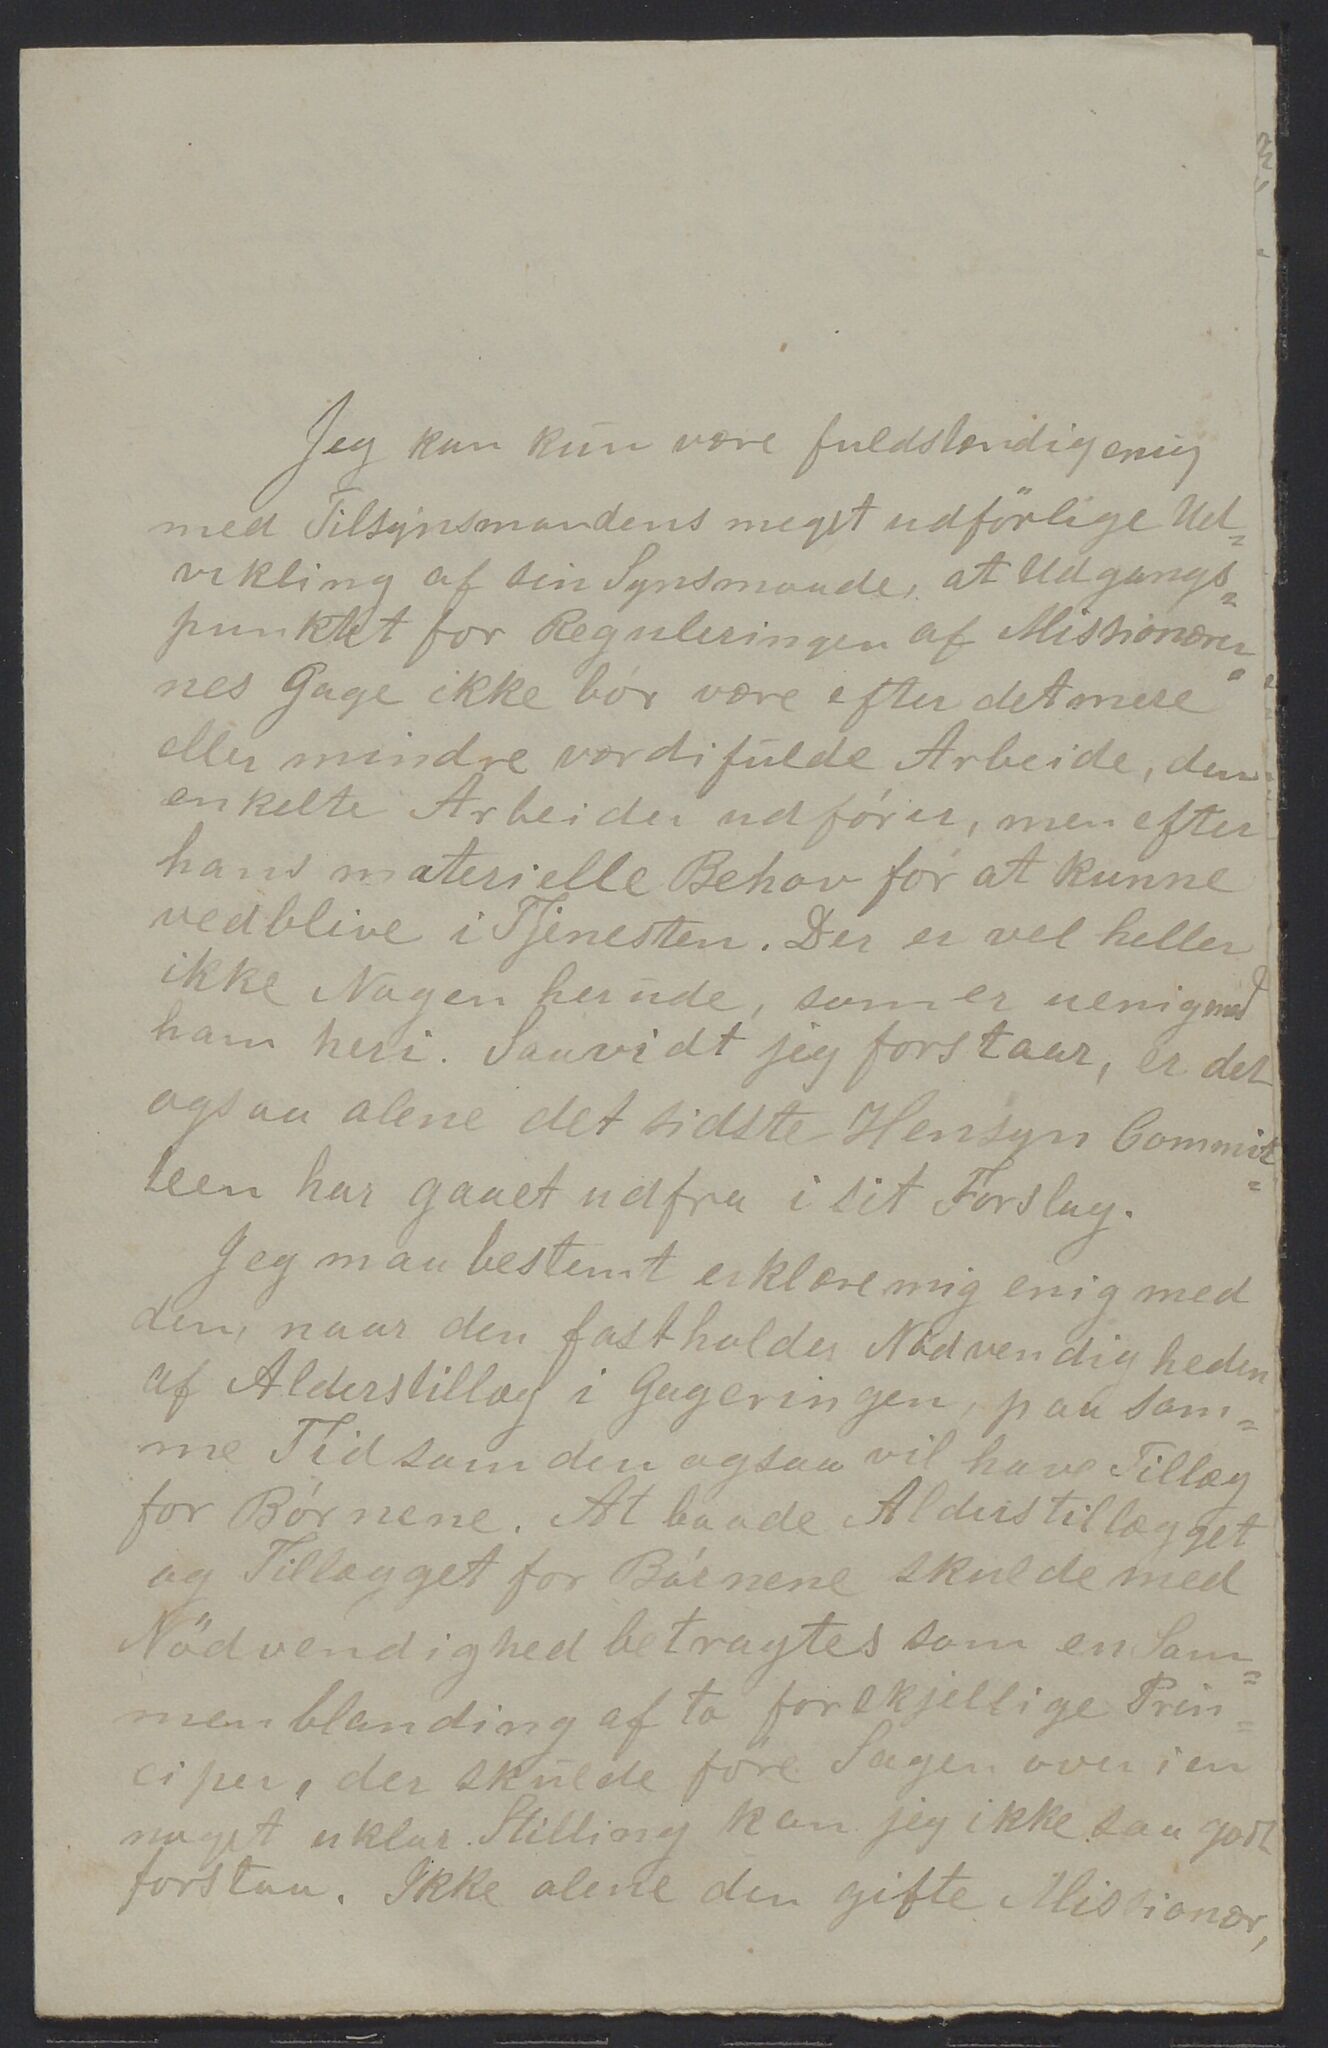 Jeg kan kun være fuldstændig enig
med Tilsynsmandens meget udförlige Ud=
vikling af sin Synsmaade, at Udgangs=
punktet for Reguleringen af Missionærer=
nes Gage ikke bör være efter det mere
eller mindre værdifulde Arbeide, den
enkelte Arbeider udförer, men efter
hans materielle Behov for at kunne
vedblive i Tjenesten. Der er vel heller
ikke Nogen herude, som er uenig med
ham heri. Saavidt jeg forstaar, er det
ogsaa alene det sidste Hensyn Commit=
teen har gaaet udfra i sit Forslag.
Jeg maa bestemt erklære mig enig med
den, naar den fastholder Nödvendigheden
af Alderstillæg i Gageringen, paa sam=
me Tid som den ogsaa vil have Tillæg
for Börnene. At baade Alderstillægget
og Tillægget for Börnene skulde med
Nödvendighed betragtes som en Sam=
menblanding af to forskjellige Prin=
ciper, der skulde före Sagen over i en
noget uklar Stilling kan jeg ikke saa godt
forstaa. Ikke alene den gifte Missionær,